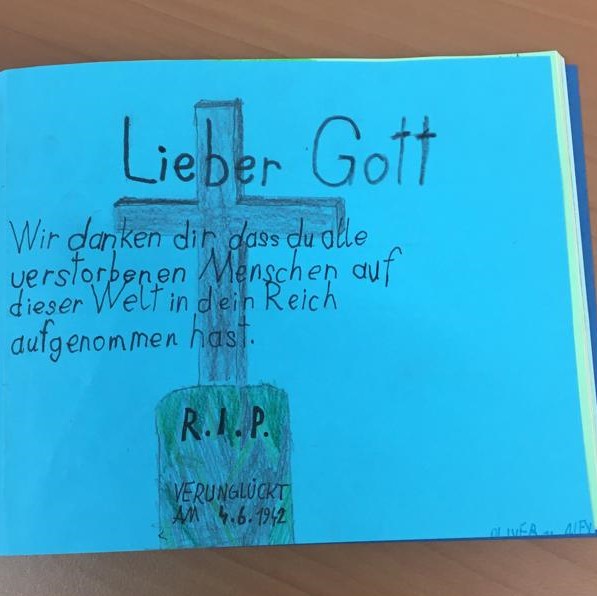 Lieber Gott
Wir danken dir dass du alle
verstorbenen Menschen auf
dieser Welt in dein Reich
aufgenommen hast.
R.I.P.
VERUNGLÜCKT
AM 4.6.1942
OLIVER